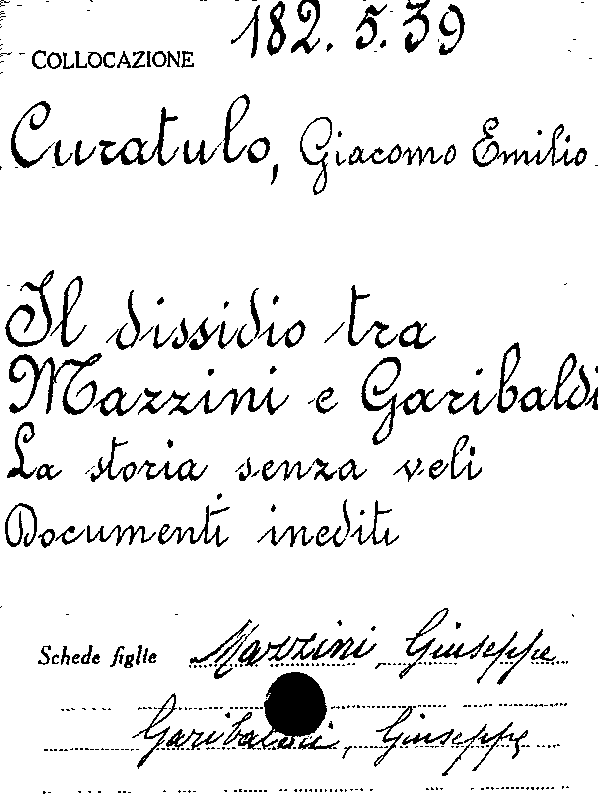 182.5.39
COLLOCAZIONE
Curatulo, Giacomo Emilio
Il dissidio tra
Mazzini e Garibaldi
La storia senza veli
Documenti inediti
Schede figlie Mazzini, Giuseppe
Garibaldi, Giuseppe